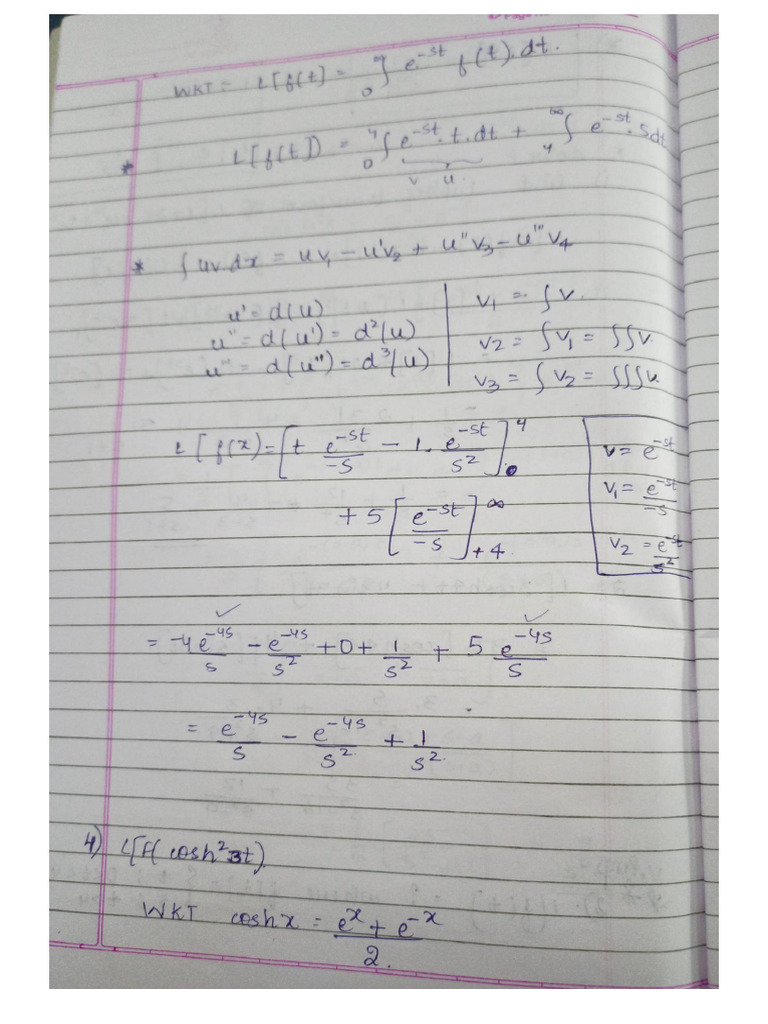 WKT = L[f(t] = ₀∫^∞ e^-st f(t).dt.
* L[f(t]) = ₀∫^4 e^-st.t.dt + ₄∫^∞ e^-st.5dt
v u
* ∫uv.dx = uv₁ - u'v₂ + u''v₃ - u'''v₄
u' = d(u) | v₁ = ∫v.
u'' = d(u') = d²(u) | v₂ = ∫v₁ = ∫∫v.
u''' = d(u'') = d³(u) | v₃ = ∫v₂ = ∫∫∫v.
L[f(x) = [t e^-st/-s - 1. e^-st/s²]₀^4
+ 5[e^-st/-s]₊₄^∞
v = e^-st
v₁ = e^-st/-s
v₂ = e^-st/s²
= -4e^-4s/s - e^-4s/s² + 0 + 1/s² + 5 e^-4s/s
= e^-4s/s - e^-4s/s² + 1/s².
4) L[f(cosh²3t).
WKT cosh x = e^x + e^-x/2.